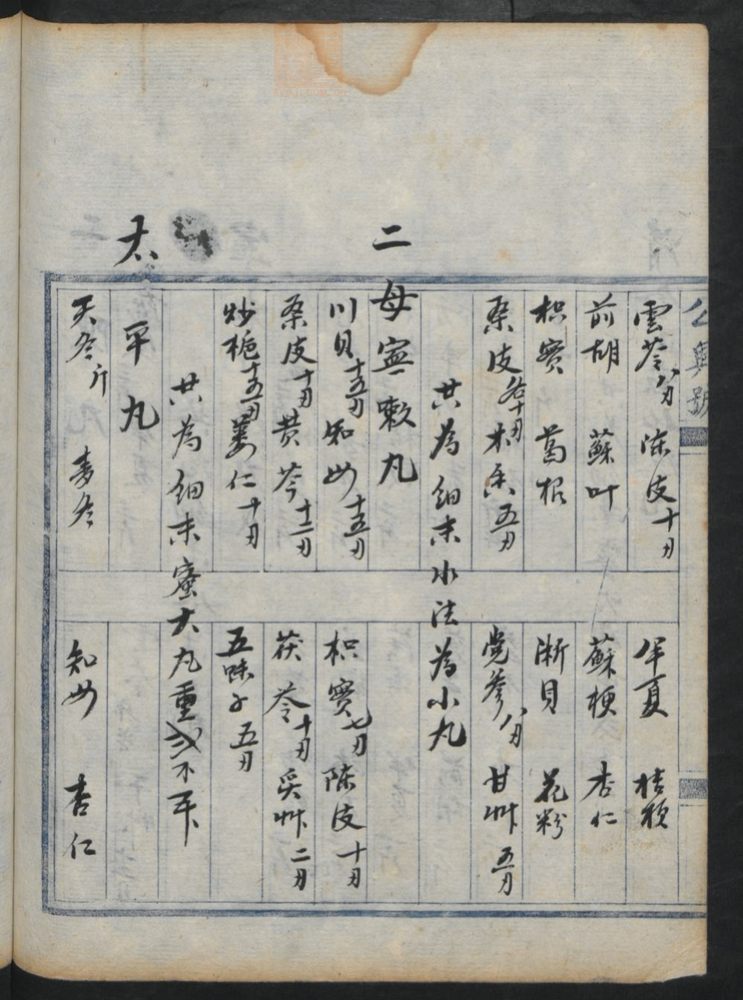 公興號
雲苓 八刃 陈皮 十刃 半夏 桔梗
前胡 蘇叶 蘇梗 杏仁
枳實 葛根 浙貝 花粉
桑皮 各十刃 木香 五刃 党參 八刃 甘艸 五刃
共為細末水法為小丸
二母寧嗽丸
川貝 十五刃 知母 十五刃 枳實 七刃 陈皮 十刃
桑皮 十刃 黄芩 十二刃 茯苓 十刃 炙艸 二刃
炒栀 十五刃 蒌仁 十刃 五味子 五刃
共為細末蜜大丸重
太平丸
天冬 麦冬 知母 杏仁